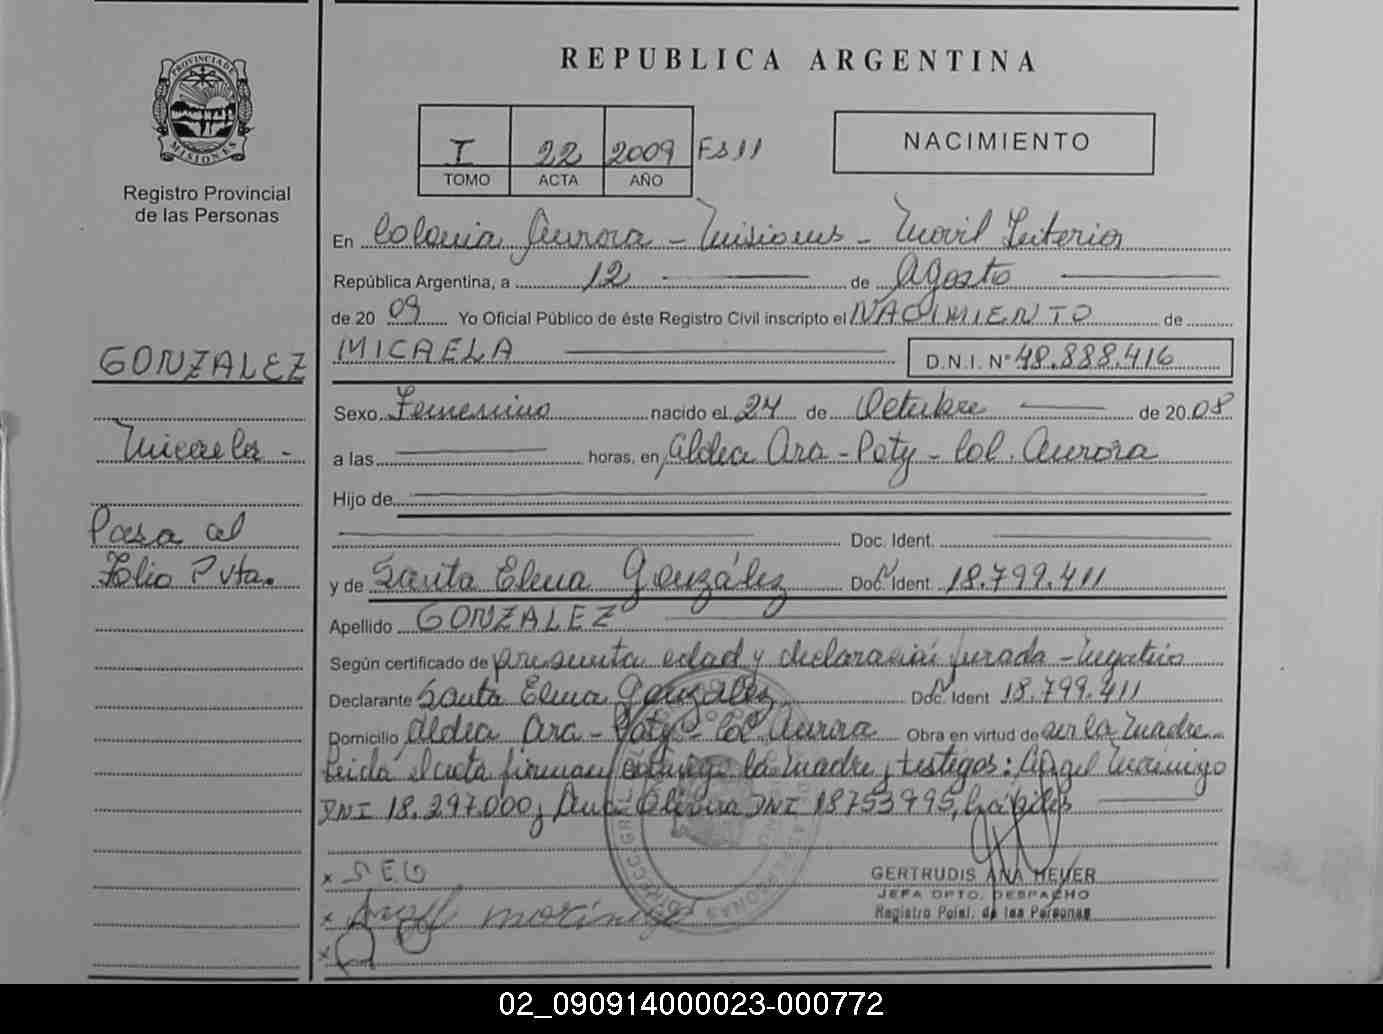 REPUBLICA ARGENTINA
PROVINCIA DE
MISIONES
Registro Provincial
de las Personas
I 22 2009 FS 11
TOMO ACTA AÑO
NACIMIENTO
En Colonia Aurora - Misiones - Movil Interior
República Argentina, a 12 de Agosto
de 20 09 Yo Oficial Público de éste Registro Civil inscripto el NACIMIENTO de
MICAELA D.N.I. N° 48.888.416
GONZALEZ
Micaela -
Pasa al
Folio Pvta.
Sexo Femenino nacido el 24 de Octubre de 20 08
a las horas, en Aldea Ara - Poty - Col. Aurora
Hijo de
Doc. Ident.
y de Santa Elena González Doc. Ident. 18.799.411
Apellido GONZALEZ
Según certificado de presunta edad y declaración jurada - Negativo
Declarante Santa Elena González Doc. Ident 18.799.411
Domicilio Aldea Ara - Poty - Col Aurora Obra en virtud de ser la madre
Leida el acta firman conmigo la madre y testigos: Angel Morinigo
DNI 18.297.000 y Olivera DNI 18753995, hábiles
x SEG
x Angel morinigo
x
GERTRUDIS ANA MEYER
JEFA DPTO. DESPACHO
Registro Pcial. de las Personas
02_090914000023-000772